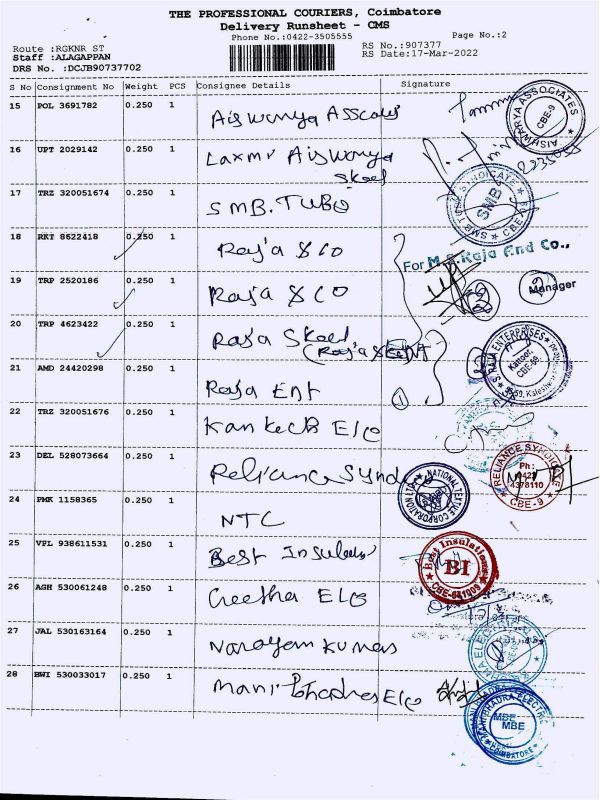 THE PROFESSIONAL COURIERS, Coimbatore
Delivery Runsheet - CMS
Phone No.:0422-3505555
Page No.:2
Route :RGKNR ST
RS No.:907377
Staff :ALAGAPPAN
RS Date:17-Mar-2022
DRS No. :DCJB90737702
S No Consignment No Weight PCS Consignee Details Signature
15 POL 3691782 0.250 1 Aiswarya
AISHWARYA ASSOCIATES CBE-9
16 UPT 2029142 0.250 1 Laxmi Aiswarya
Steel
17 TRZ 320051674 0.250 1 SMB. TUBO
SMB TUBE SYNDICATE SMB
18 RKT 8622418 0.250 1 Raja & CO
For M.S.Raja And Co.,
19 TRP 2520186 0.250 1 Raja & CO
2 Manager
20 TRP 4623422 0.250 1 Raja Steel
(Raja & ENT
S RAJA ENTERPRISES Kattoor, CBE-9
21 AMD 24420298 0.250 1 Raja Ent 1
22 TRZ 320051676 0.250 1 Elc
23 DEL 528073664 0.250 1 Reliance
RELIANCE SYNDICATE Ph: 0422 4378110 CBE-9
24 PMK 1158365 0.250 1 NTC
NATIONAL TEXTILE CORPORATION LTD
25 VPL 938611531 0.250 1 Best
Best Insulations BI CBE-641009
26 AGH 530061248 0.250 1 Geetha Elc
27 JAL 530163164 0.250 1 Narayan Kumar
28 BWI 530033017 0.250 1 Elc
MANIBHADRA ELECTRIC MBE MBE COIMBATORE